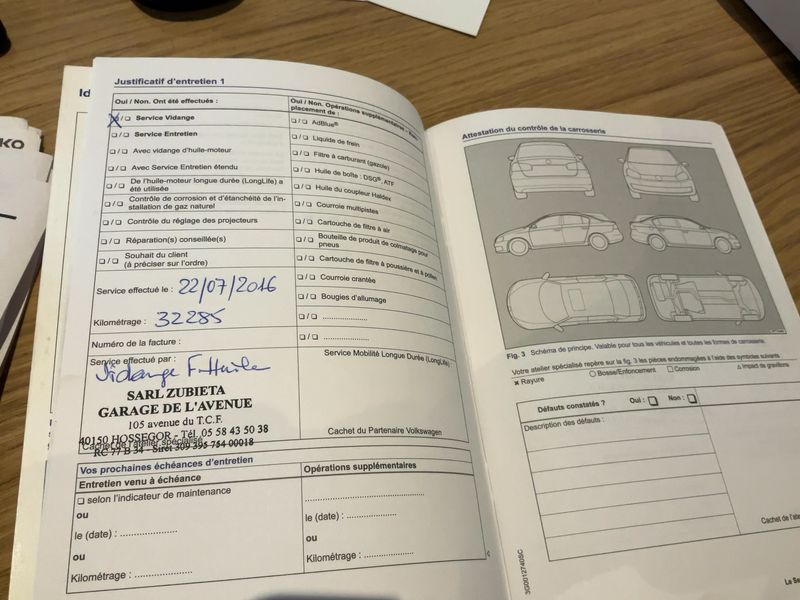 Id
KO
Justificatif d'entretien 1
Oui / Non. Ont été effectués :
❏ / ❏ Service Vidange
❏ / ❏ Service Entretien
❏ / ❏ Avec vidange d'huile-moteur
❏ / ❏ Avec Service Entretien étendu
❏ / ❏ De l'huile-moteur longue durée (LongLife) a
été utilisée
❏ / ❏ Contrôle de corrosion et d'étanchéité de l'ins-
tallation de gaz naturel
❏ / ❏ Contrôle du réglage des projecteurs
❏ / ❏ Réparation(s) conseillée(s)
❏ / ❏ Souhait du client
(à préciser sur l'ordre)
Service effectué le : 22/07/2016
Kilométrage : 32285
Numéro de la facture :
Service effectué par :
Vidange F. Huile
SARL ZUBIETA
GARAGE DE L'AVENUE
105 avenue du T.C.F.
40150 HOSSEGOR - Tél. 05 58 43 50 38
Cachet de l'atelier spécialisé
RC 77 B 34 - Siret 309 395 754 00018
Oui / Non. Opérations supplémentaires
placement de :
❏ / ❏ AdBlue®
❏ / ❏ Liquide de frein
❏ / ❏ Filtre à carburant (gazole)
❏ / ❏ Huile de boîte : DSG®, ATF
❏ / ❏ Huile du coupleur Haldex
❏ / ❏ Courroie multipistes
❏ / ❏ Cartouche de filtre à air
❏ / ❏ Bouteille de produit de colmatage pour
pneus
❏ / ❏ Cartouche de filtre à poussière et à pollen
❏ / ❏ Courroie crantée
❏ / ❏ Bougies d'allumage
❏ / ❏ ....................
❏ / ❏ ....................
Service Mobilité Longue Durée (LongLife) :
Cachet du Partenaire Volkswagen
Vos prochaines échéances d'entretien
Entretien venu à échéance
❏ selon l'indicateur de maintenance
ou
le (date) : ....................
ou
Kilométrage : ....................
Opérations supplémentaires
........................................
le (date) : ....................
ou
Kilométrage : ....................
Attestation du contrôle de la carrosserie
Fig. 3 Schéma de principe. Valable pour tous les véhicules et toutes les formes de carrosserie.
Votre atelier spécialisé repère sur la fig. 3 les pièces endommagées à l'aide des symboles suivants
× Rayure ○ Bosse/Enfoncement □ Corrosion △ Impact de gravillons
Défauts constatés ? Oui : ❏ Non : ❏
Description des défauts :
Cachet de l'ate
3G0012740SC
Le Se